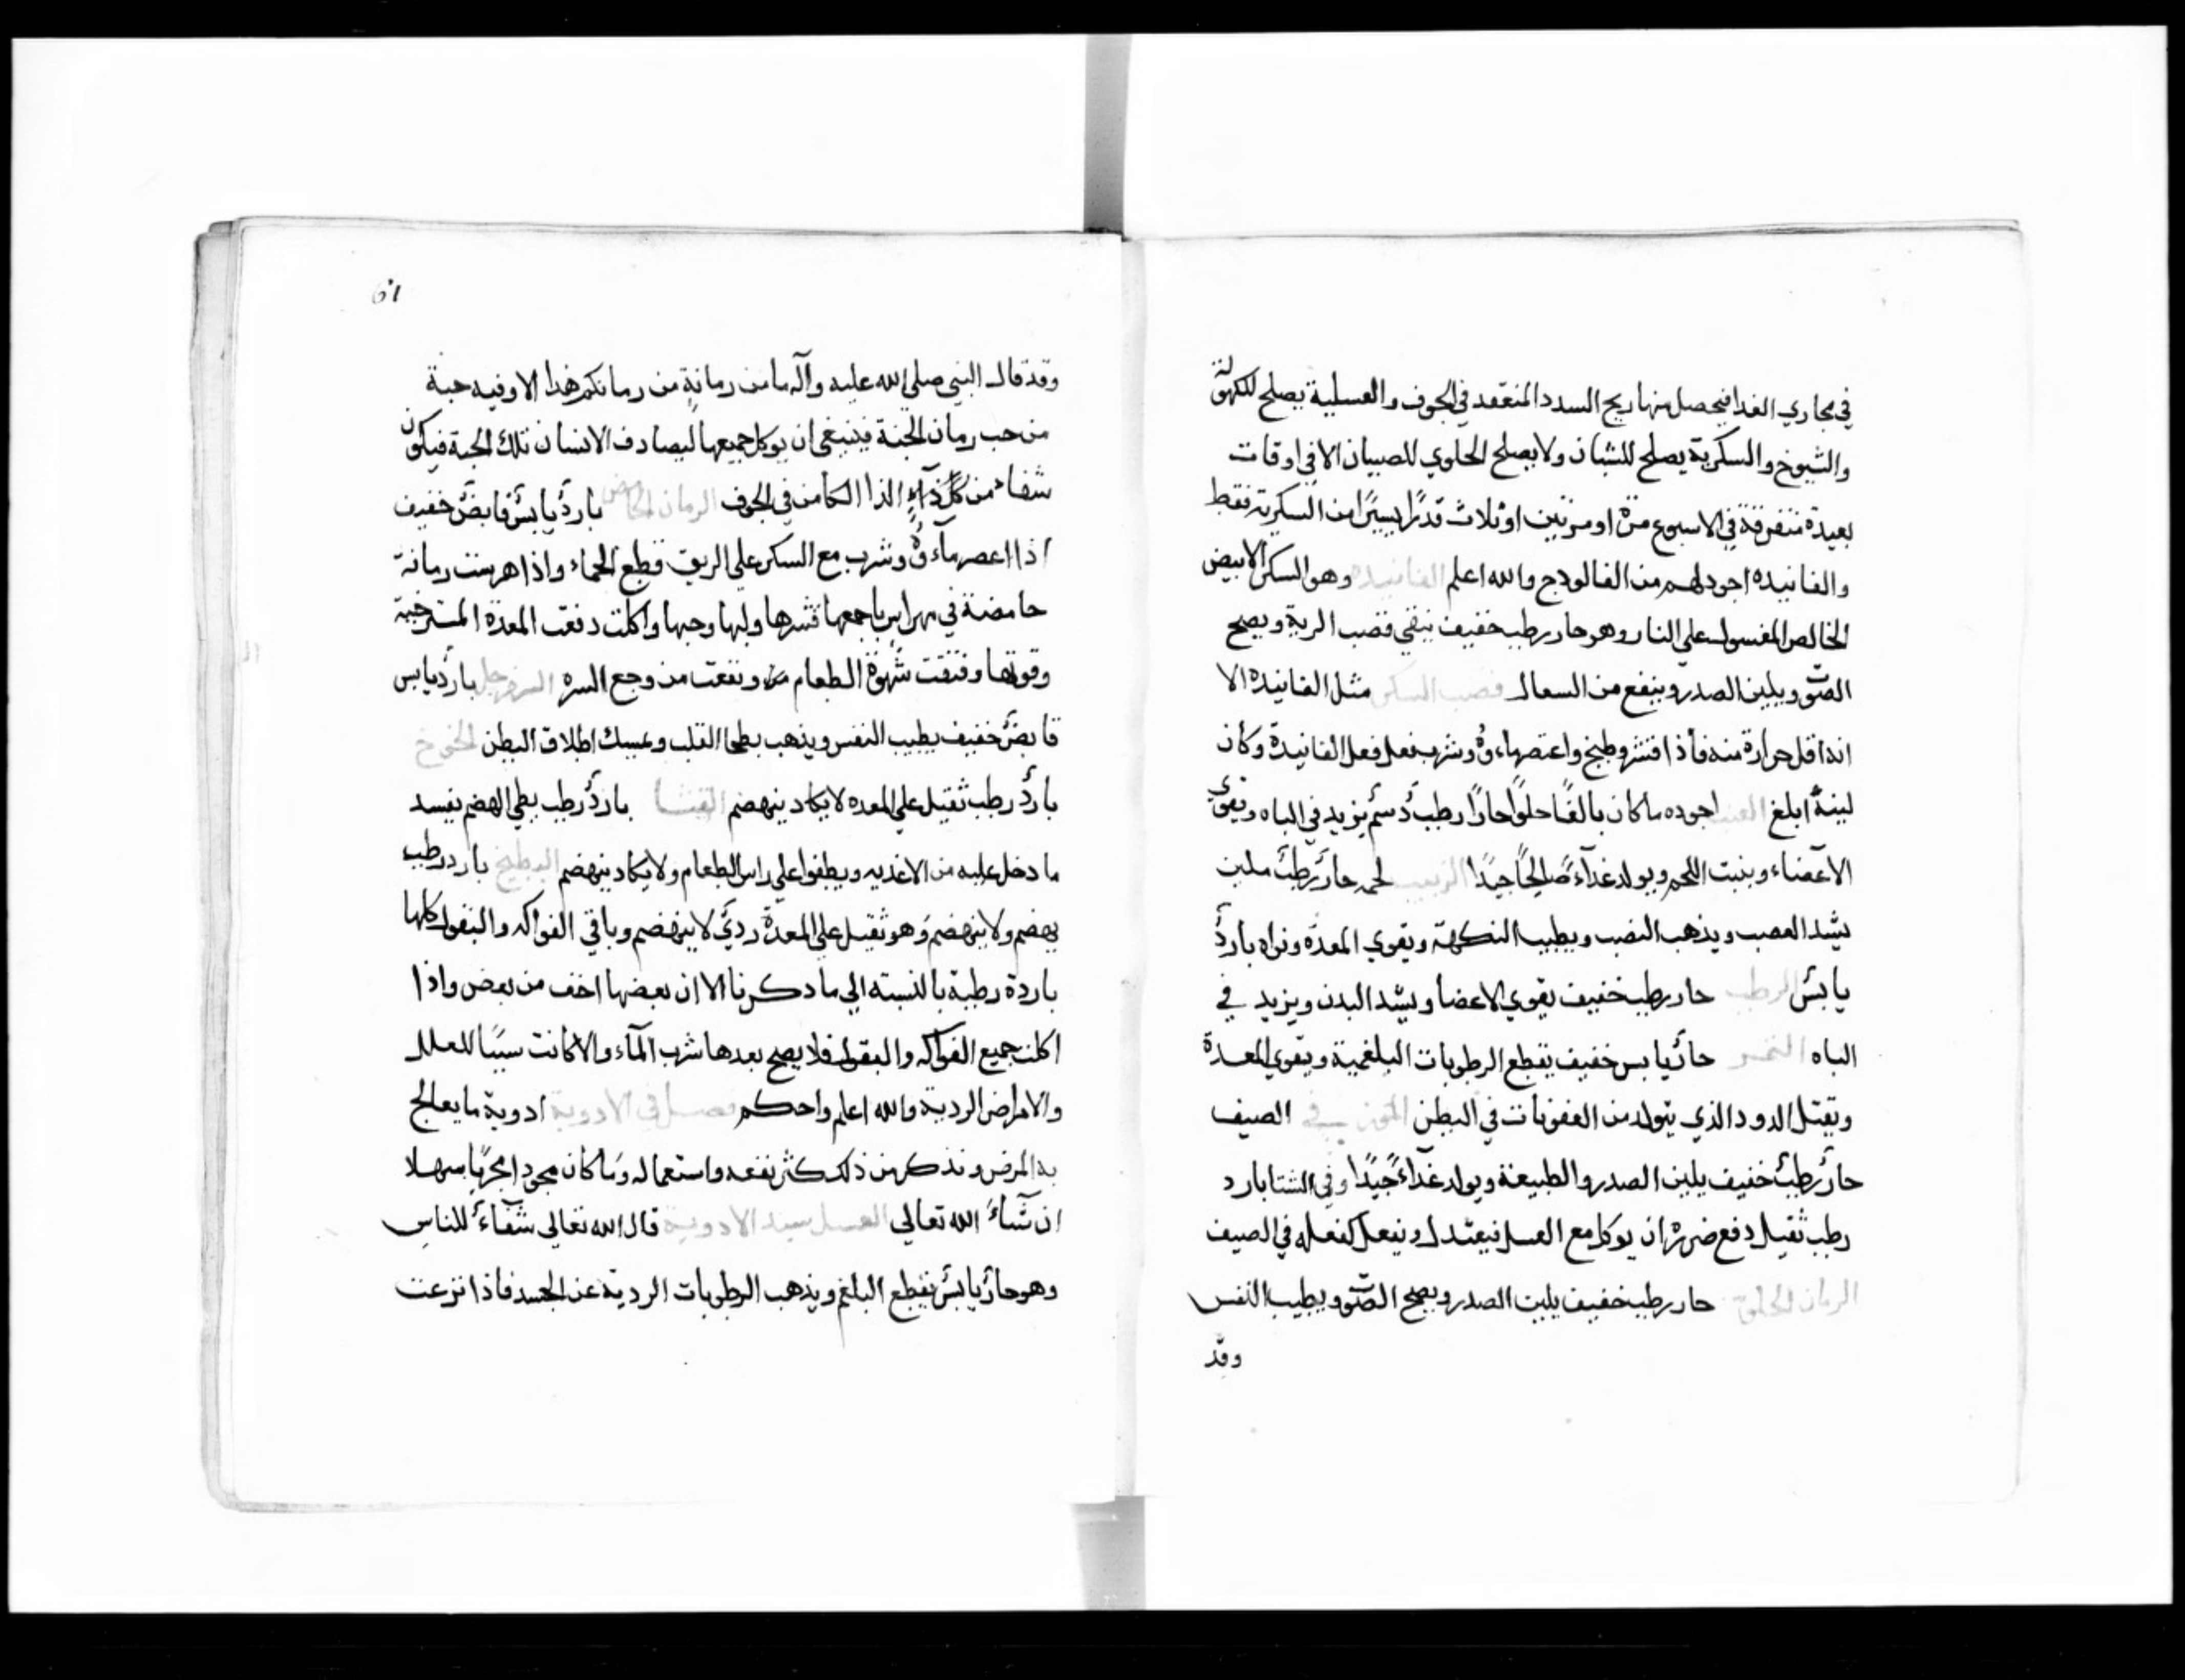 في مجاري الغدا فيحصل منها ريح السدد المنعقد في الجوف والعسلية يصلح للكهولة
والشيوخ والسكرية يصلح للشبان ولا يصلح الحلوي للصبيان الا في اوقات
بعيدة متفرقة في الاسبوع مرة او مرتين او ثلاث قدرًا يسيرًا من السكرية فقط
والفانيده اجود لهم من الفالودج والله اعلم الفانيده وهو السكر الابيض
الخالص المغسول علي النار وهو حار رطب خفيف ينقي قصب الرية ويصح
الصّوت ويلين الصدر وينفع من السعال قصب السكر مثل الفانيده الا
انه اقل حرارة منه فأذا قشر وطبخ واعتصر ماءوه وشرب فعل فعل الفانيدة وكان
لينهُ ابلغ العنب اجوده ما كان بالغًا حلوًا حارًا رطبٌ دسمٌ يزيد في الباه ويقوي
الاعضاء وينبت اللحم ويولد غداءً صالحًا جيدًا الزبيب لحمه حارٌ رطبٌ ملين
يشد العصب ويذهب النصب ويطيب النكهة ويقوي المعدة ونواه باردٌ
يابسٌ الرطب حار رطب خفيف يقوي الاعضا ويشد البدن ويزيد في
الباه التمر حارٌ يابس خفيف يقطع الرطوبات البلغمية ويقوي المعدة
ويقتل الدود الذي يتولد من العفونات في البطن الموز في الصيف
حارٌ رطبٌ خفيف يلين الصدر والطبيعة ويولد غداءً جيدًا وفي الشتا بارد
رطب ثقيل دفع ضرره ان يوكل مع العسل فيعتدل ويفعل كفعله في الصيف
الرمان الحلو حار رطب خفيف يلين الصدر ويصح الصّوت ويطيب النفس
وقد
٦١
وقد قال النبي صلي الله عليه وآله ما من رمانةٍ من رمانكم هذا الا وفيه حبة
من حب رمان الجنة فينبغي ان يوكل جميعها ليصادف الانسان تلك الحبة فيكون
شفاء من كل دآءٍ الدا الكامن في الجوف الرمان الحامض باردٌ يابسٌ قابضٌ خفيف
اذا اعصر مآءوهُ وشرب مع السكر علي الريق قطع الحماء واذا هرست رمانة
حامضة في مهراس باجمعها قشرها ولبها وحبها واكلت دفعت المعدة المسترخية
وقوتها وفتقت شهوة الطعام ونفعت من وجع السره السفرجل باردٌ يابس
قابضٌ خفيف يطيب النفس ويذهب بطخا القلب ويمسك اطلاق البطن الخوخ
باردٌ رطب ثقيل علي المعده لا يكاد ينهضم القثا باردٌ رطب بطي الهضم يفسد
ما دخل عليه من الاغذيه ويطفوا علي راس الطعام ولا يكاد ينهضم البطيخ بارد رطب
يهضم ولا ينهضم وهو ثقيل علي المعدة رديٌ لا ينهضم وباقي الفواكه والبقول كلها
باردة رطبة بالنسبته الي ما دكرنا الا ان بعضها اخف من بعض واذا
اكلت جميع الفواكه والبقول فلا يصح بعدها شرب المآء والا كانت سببًا للعلل
والامراض الردية والله اعلم واحكم فصل في الادوية ادوية ما يعالج
به المرض ونذكر من ذلك كثر نفعه واستعماله وما كان مجربا سهلا
ان شآء الله تعالي العسل سيد الادوية قال الله تعالي شفآءٌ للناس
وهو حارٌ يابسٌ يقطع البلغم ويذهب الرطوبات الردية عن الجسد فاذا نزعت